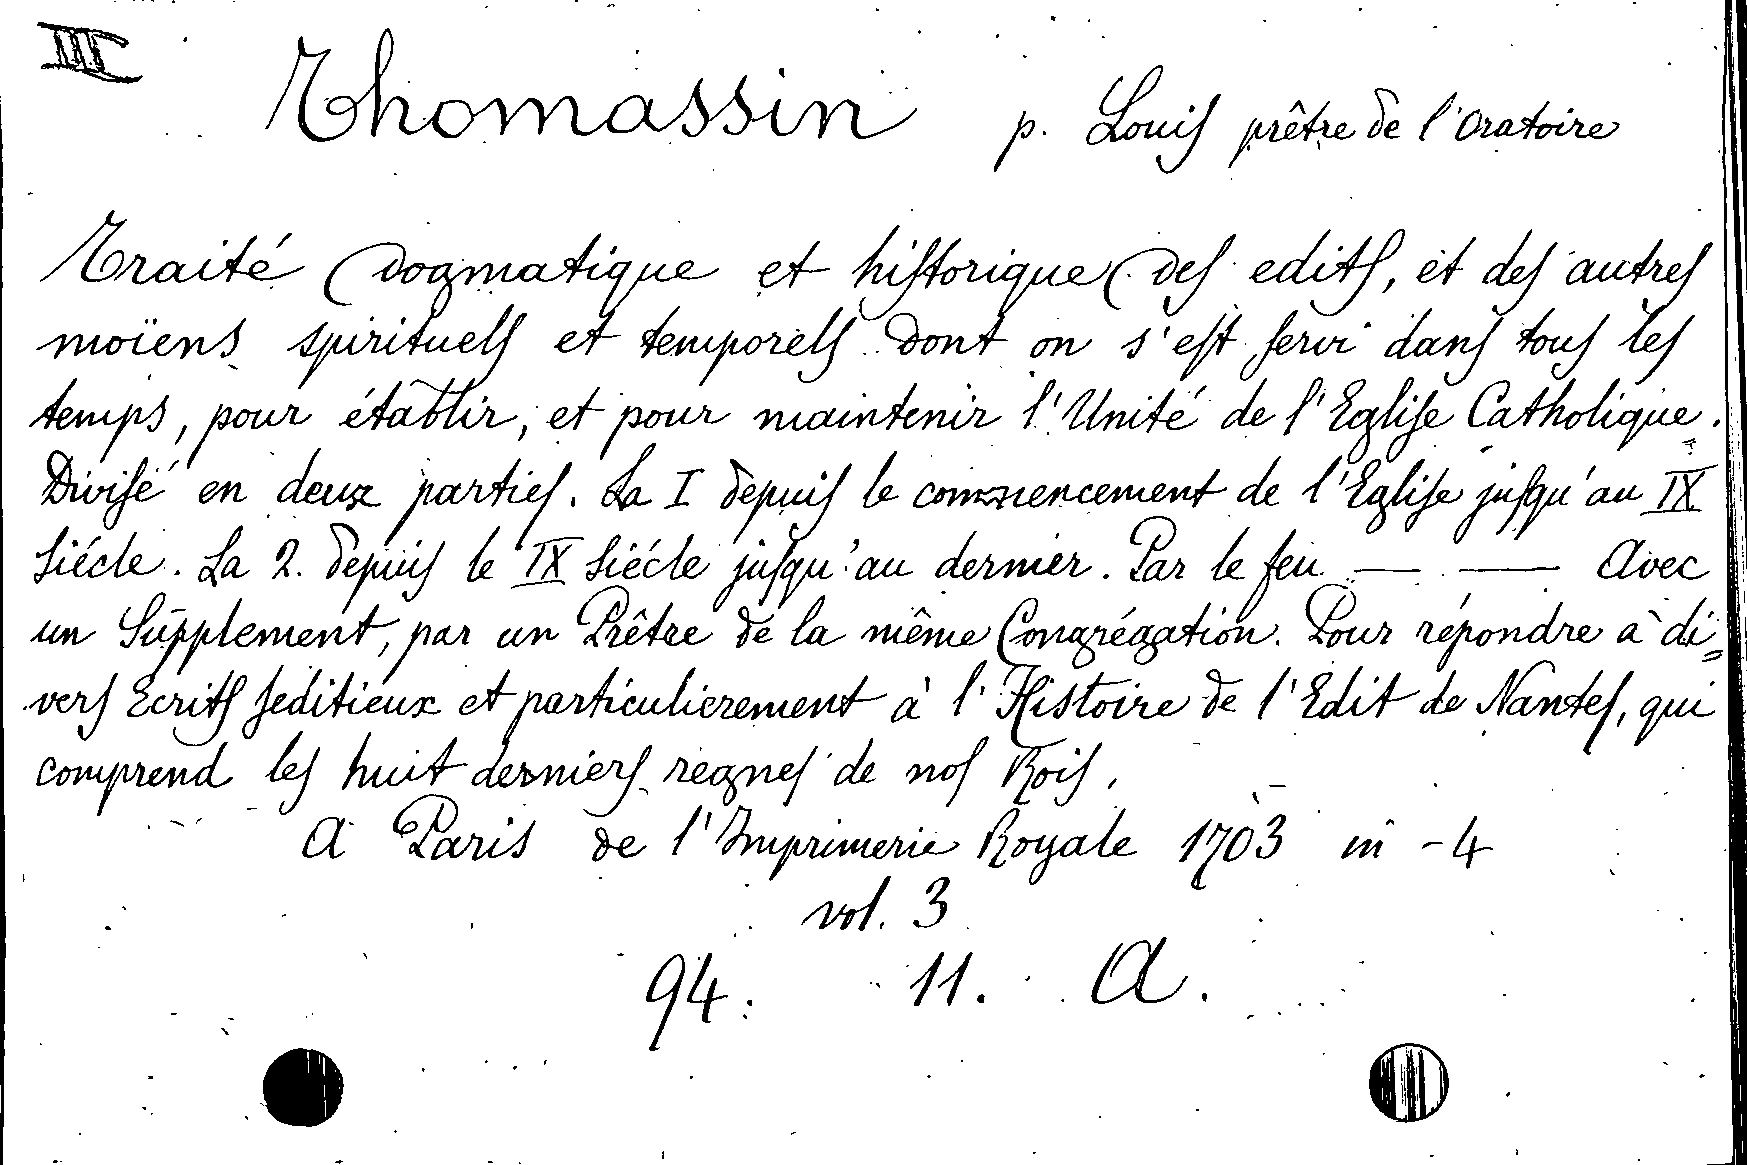 III
Thomassin p. Louis prêtre de l'Oratoire
Traité Dogmatique et historique des edits, et des autres
moïens spirituels et temporels dont on s'est servi dans tous les
temps, pour établir, et pour maintenir l'Unité de l'Eglise Catholique.
Divisé en deux parties. La I depuis le commencement de l'Eglise jusqu'au IX
Siécle. La 2. depuis le IX Siécle jusqu'au dernier. Par le feu — — Avec
un Supplement, par un Prêtre de la même Congrégation. Pour répondre à di=
vers Ecrits seditieux et particulierement à l'Histoire de l'Edit de Nantes, qui
comprend les huit derniers regnes de nos Rois.
A Paris de l'Imprimerie Royale 1703 in -4
vol. 3
94. 11. A.